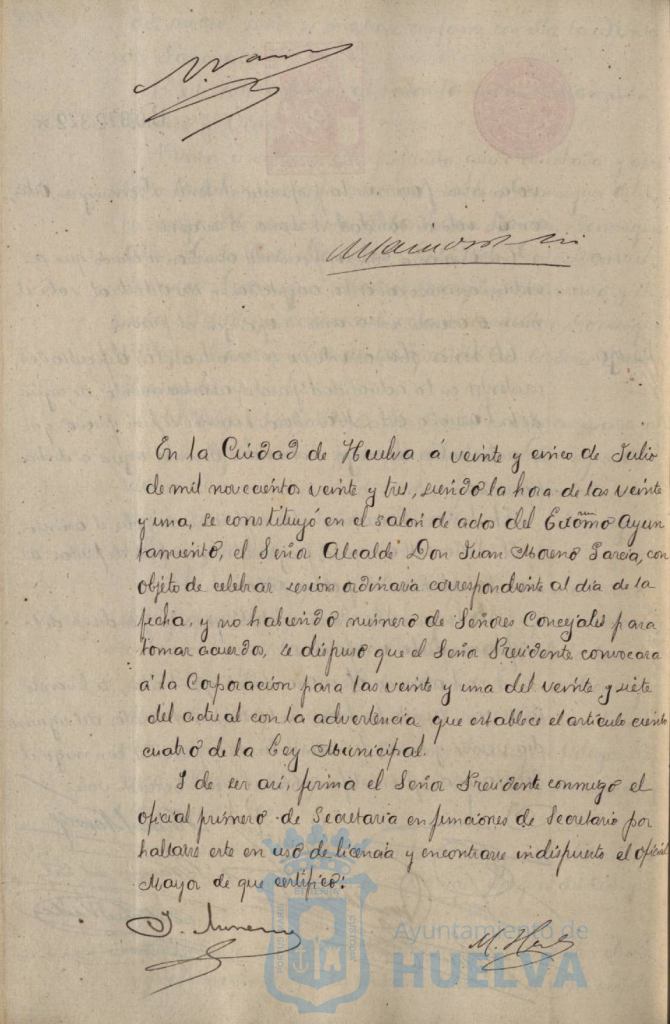 En la Ciudad de Huelva á veinte y cinco de Julio
de mil novecientos veinte y tres, siendo la hora de las veinte
y una, se constituyó en el salón de actos del Excmo Ayun
tamiento, el Señor Alcalde Don Juan Moreno García, con
objeto de celebrar sesión ordinaria correspondiente al día de la
fecha, y no habiendo número de Señores Concejales para
tomar acuerdo, se dispuso que el Señor Presidente convocara
á la Corporación para las veinte y una del veinte y siete
del actual con la advertencia que establece el artículo ciento
cuatro de la Ley Municipal.
Y de ser así, firma el Señor Presidente conmigo el
oficial primero de Secretaria en funciones de Secretario por
hallarse este en uso de licencia y encontrarse indispuesto el oficial
Mayor de que certifico:
Ayuntamiento de
HUELVA